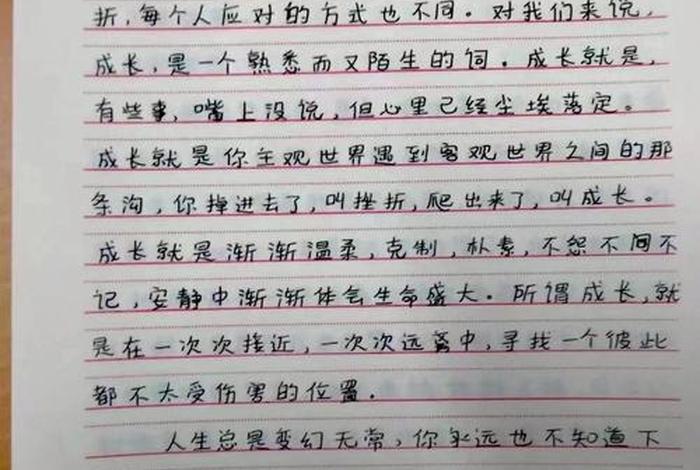 折，每个人应对的方式也不同。对我们来说，
成长，是一个熟悉而又陌生的词。成长就是，
有些事，嘴上没说，但心里已经尘埃落定。
成长就是你主观世界遇到客观世界之间的那
条沟，你掉进去了，叫挫折，爬出来了，叫成长。
成长就是渐渐温柔，克制，朴素，不怨不问不
记，安静中渐渐体会生命盛大。所谓成长，就
是在一次次接近，一次次远离中，寻找一个彼此
都不太受伤害的位置。
人生总是变幻无常，你永远也不知道下